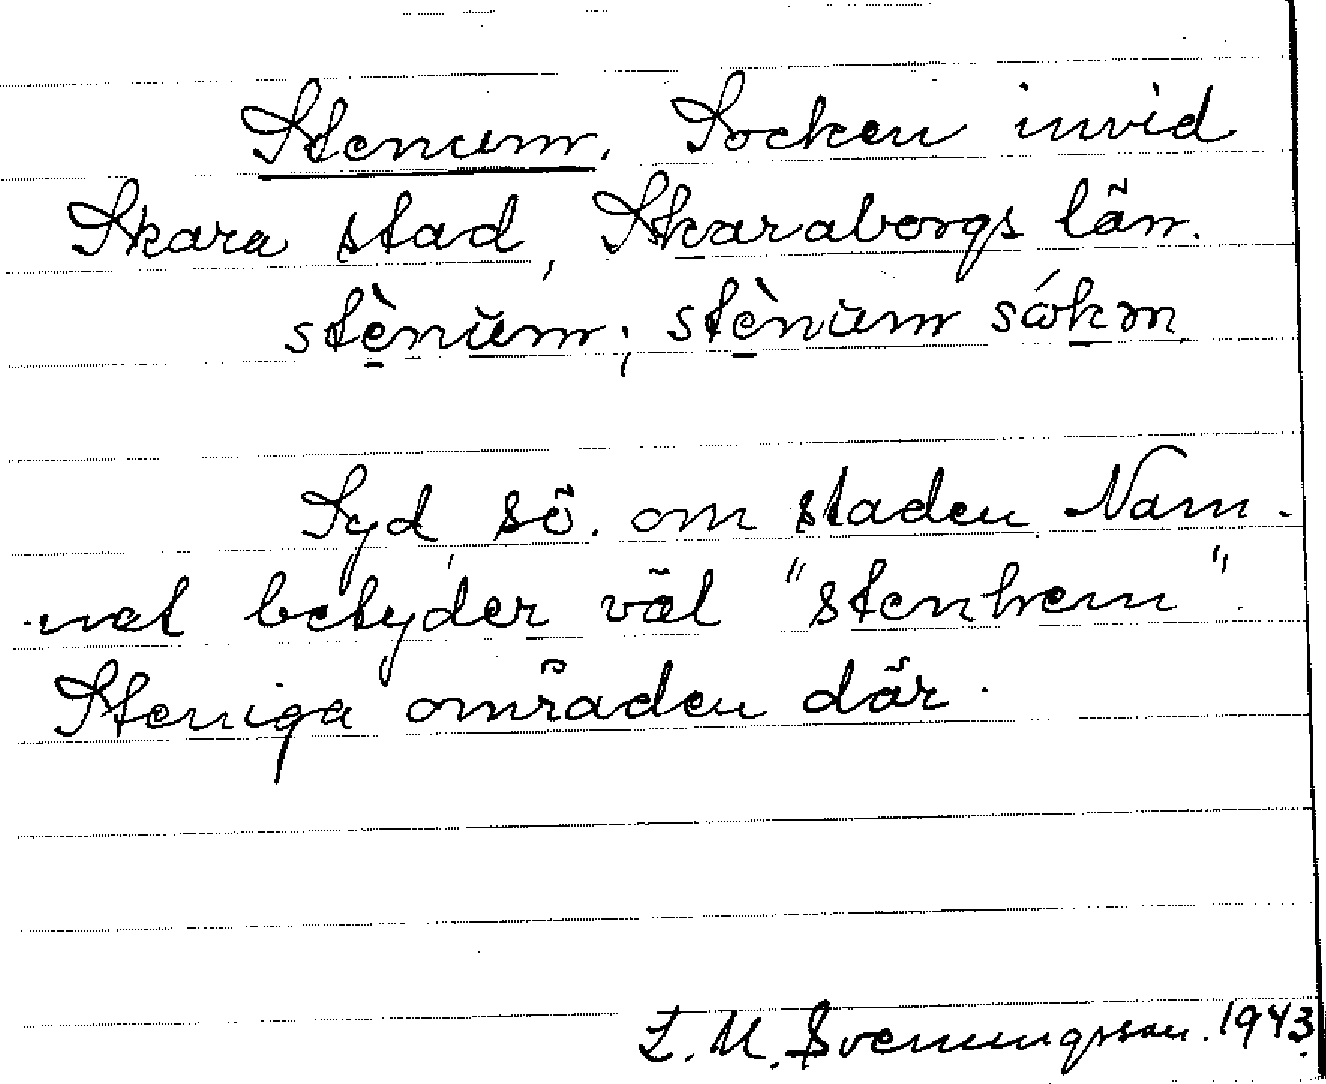 Stenum. Socken invid
Skara stad, Skaraborgs län.
stènŭm; stènŭm sókm
Syd, sö. om staden Nam-
net betyder väl "stenhem".
Steniga områden där.
L. M. Svenungsson. 1943